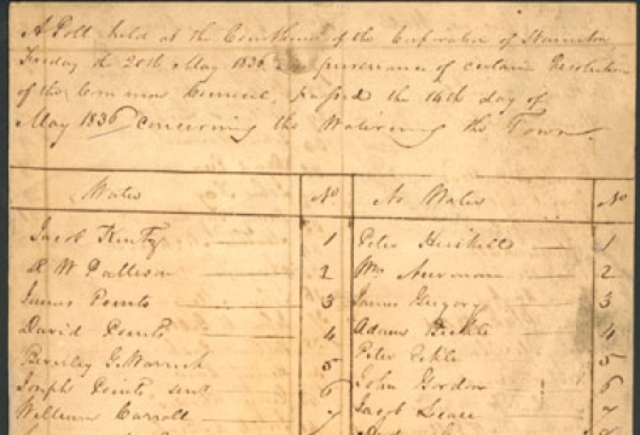 A Poll held at the Courthouse of the Corporation of Staunton
Friday the 20th May 1836 in pursuance of certain Resolution
of the Common Council, passed the 14th day of
May 1836 concerning the Watering the Town.
Water No No Water No
Jacob Kurtz 1 Peter Heiskell 1
R W Patteson 2 Wm 2
James Points 3 James Gregory 3
David Points 4 Adam Bickle 4
G. Warwick 5 Peter 5
Joseph Points senr 6 John Gordon 6
William Carroll 7 Jacob Lease 7